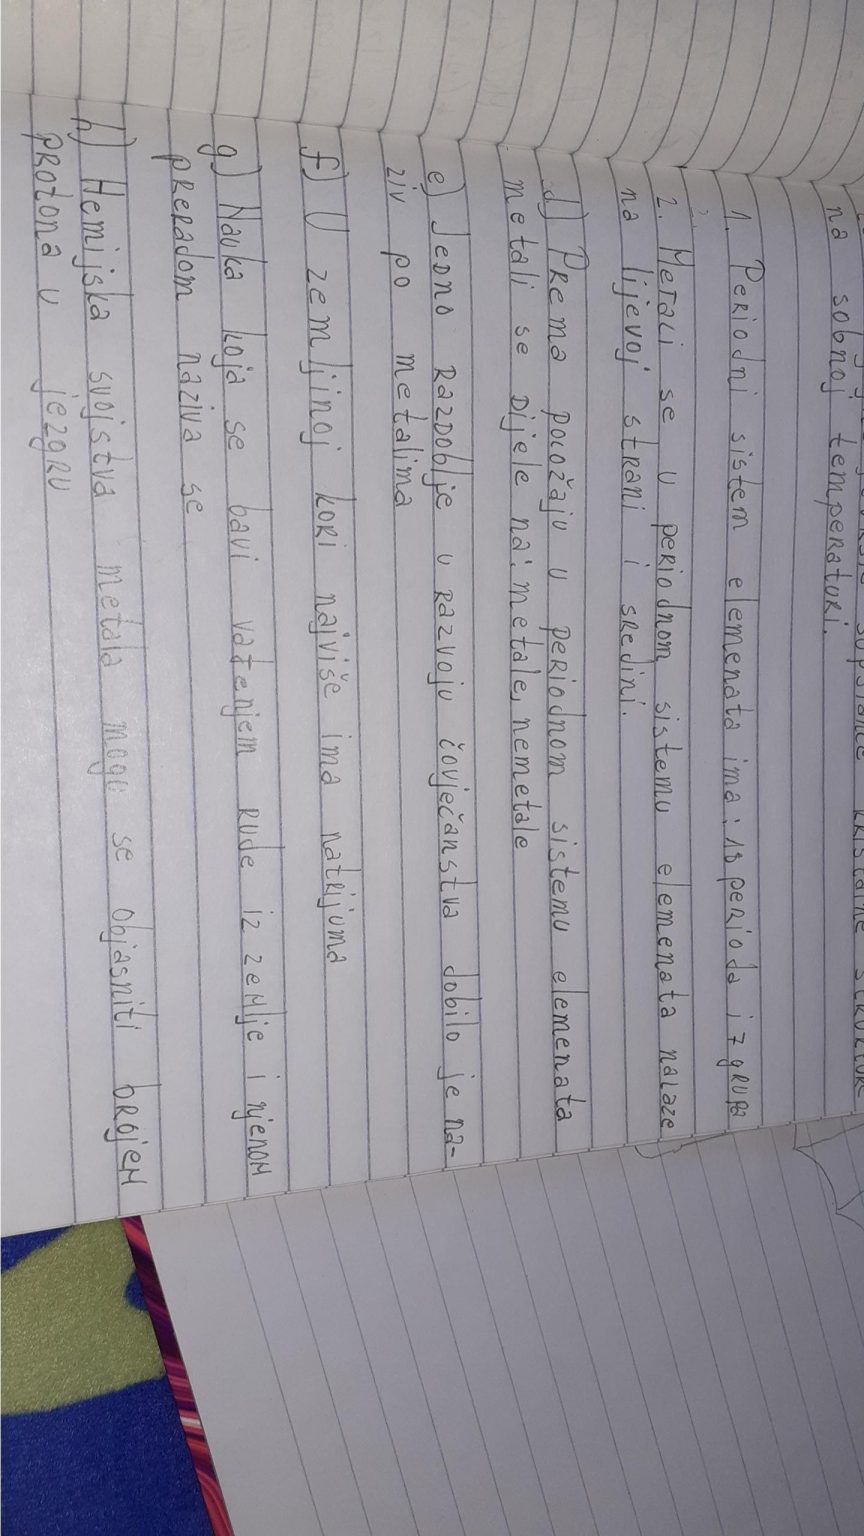 na sobnoj temperaturi.
1. Periodni sistem elemenata ima: 18 perioda i 7 grupa
2. Metali se u periodnom sistemu elemenata nalaze
na lijevoj strani i sredini.
d) Prema položaju u periodnom sistemu elemenata
metali se dijele na: metale, nemetale
e) Jedno razdoblje u razvoju čovječanstva dobilo je na-
ziv po metalima
f) U zemljinoj kori najviše ima natrijuma
g) Nauka koja se bavi vađenjem rude iz zemlje i njenom
preradom naziva se
h) Hemijska svojstva metala mogu se objasniti brojem
protona u jezgru